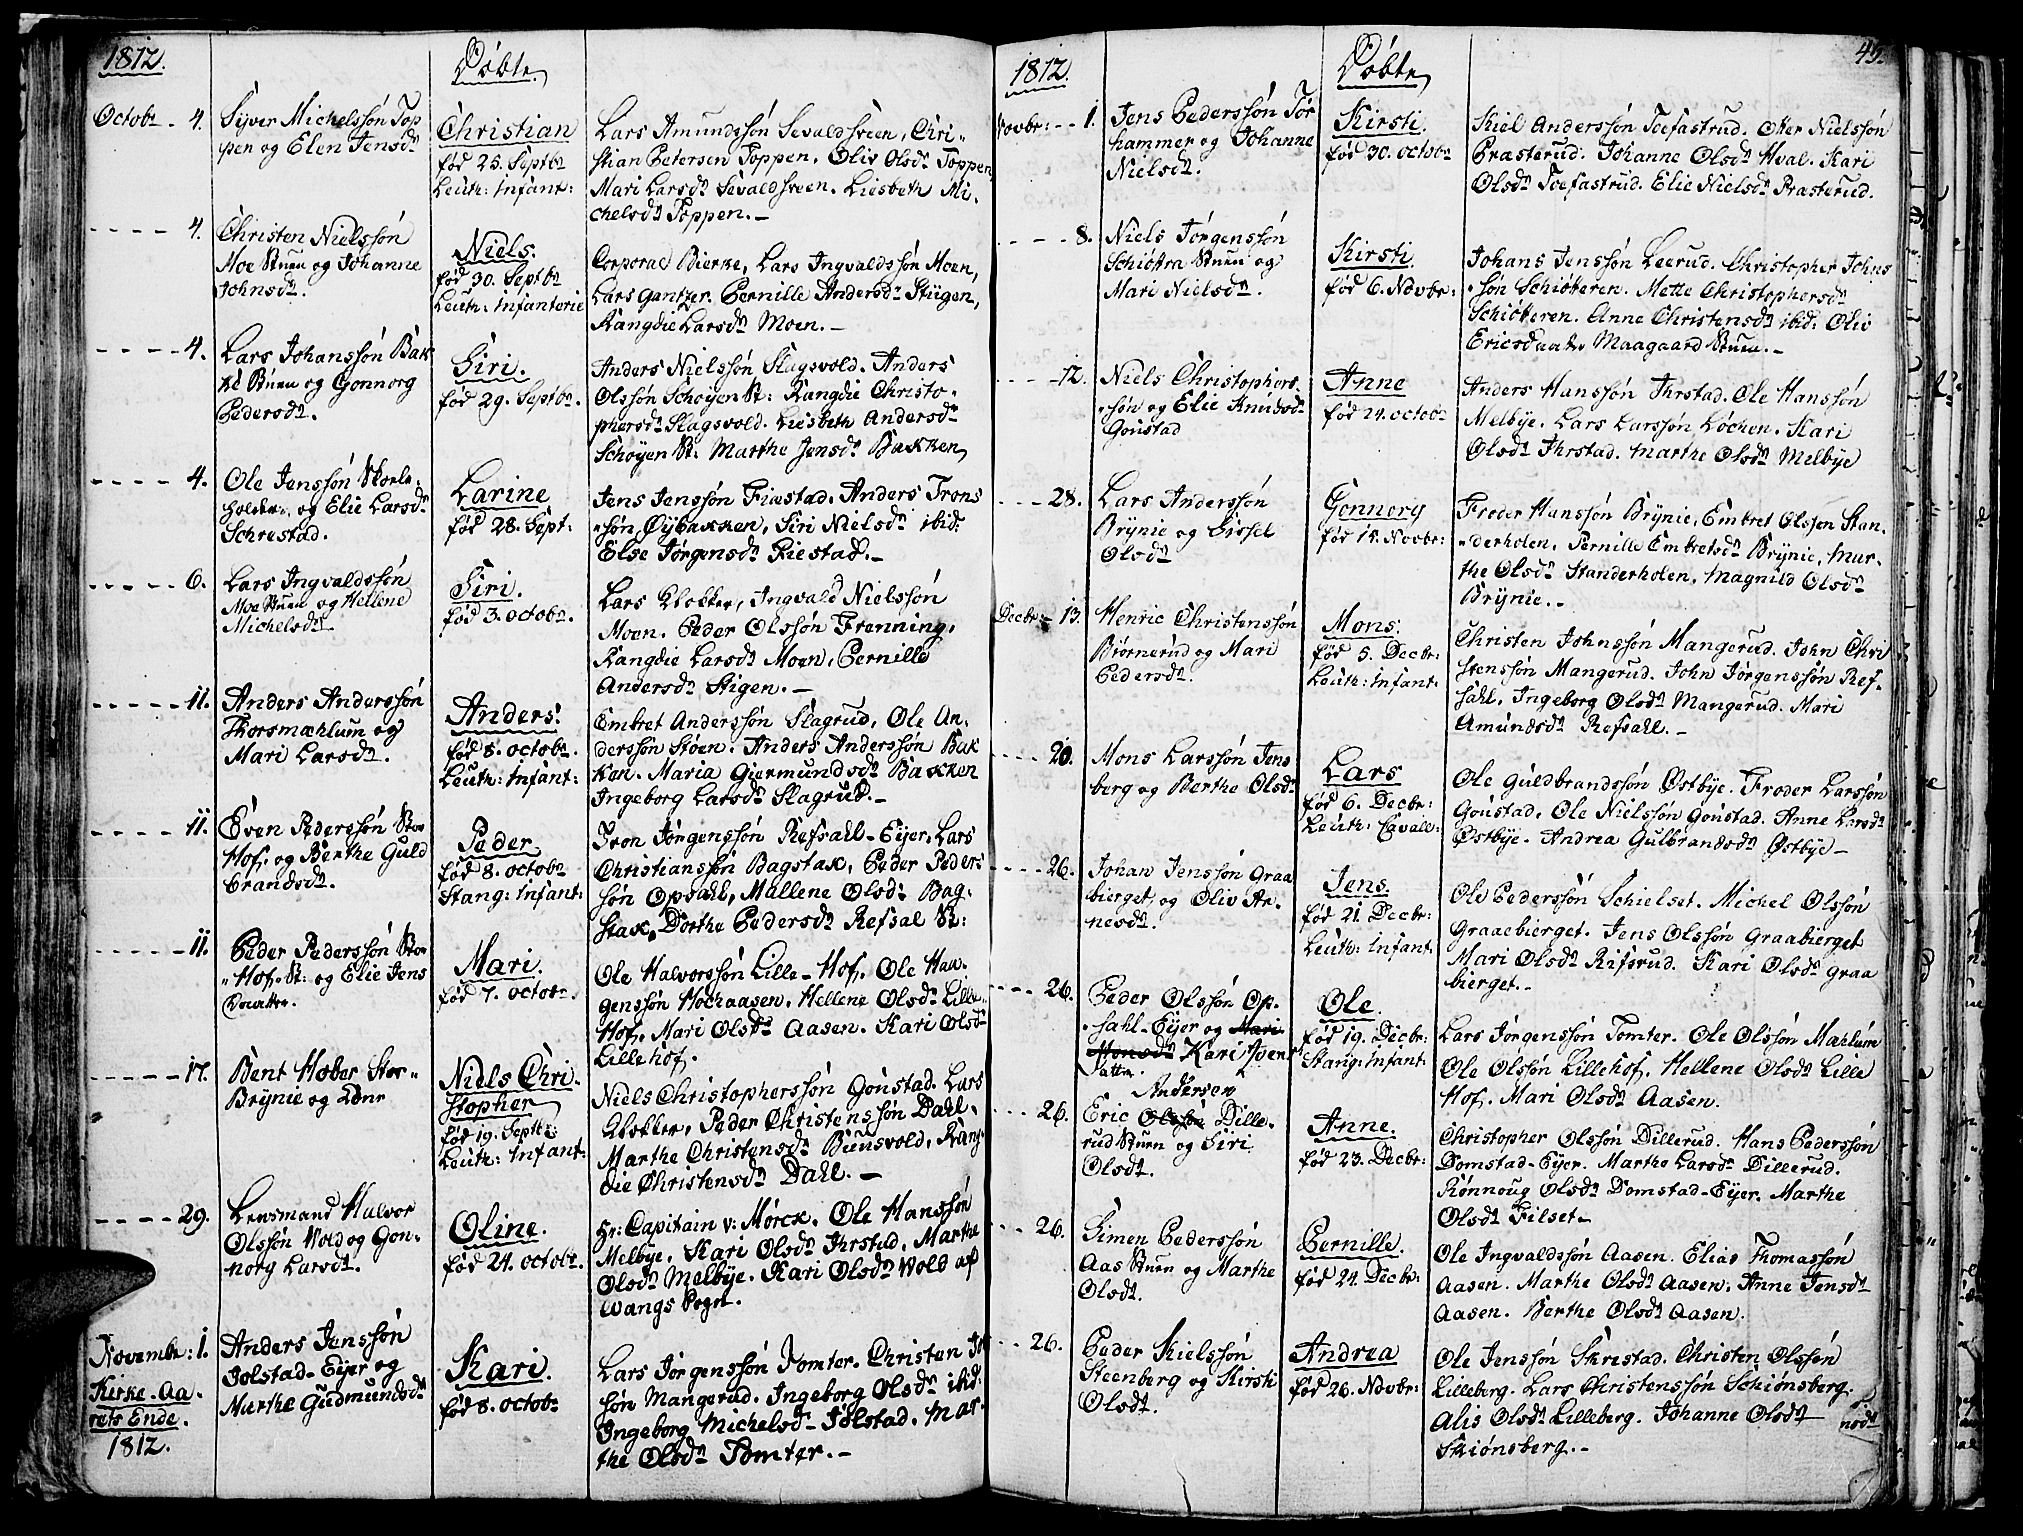 1812.
Döbte
Octobr - 4.
Syver Michelssön Top
pen og Elen Jensdr
Christian
fød 25. Septbr
Leuth: Infant:
Lars Amundssön Sevaldsveen, Chri-
stian Petersen Toppen. Oliv Olsdr Toppen
Mari Larsdr Sevaldsveen. Liesbeth Mi-
chelsdr Toppen. -
- - - - 4.
Christen Nielssön
Moe Stuen og Johanne
Johnsdr.
Niels.
fød 30. Septbr
Leuth: Infanterie
Corporal Bierke, Lars Ingvaldssön Moen,
Lars Gantzer. Pernille Andersdr Stiigen,
Rangdie Larsdr Moen. -
- - - - 4.
Lars Johanssön Bak
ke Stuen og Gonnorg
Pedersdr.
Siri.
fød 29. Septbr.
Anders Nielssön Slagsvold. Anders
Olssön Schøyen St: Rangdie Christo-
phersdr Slagsvold. Liesbeth Andersdr
Schøyen St: Marthe Jensdr Bakken
- - - - 4.
Ole Jenssön Skole-
holder, og Elie Larsdr
Schrestad.
Larine
fød 28. Sept:
Jens Jenssön Fiæstad. Anders Trons
sön Öybakken, Siri Nielsdr ibid:
Else Jørgensdr Riestad. -
- - - - 6.
Lars Ingvaldssön
Moe Stuen og Hellene
Michelsdr
Siri.
fød 3. octobr.
Lars Klokker, Ingvald Nielssön
Moen. Peder Olssön Frenning,
Rangdie Larsdr Moen, Pernille
Andersdr Stigen. -
- - - - 11.
Anders Anderssön
Thorsmæhlum og
Mari Larsdr.
Anders.
fød 8. octobr.
Leuth: Infant:
Embret Anderssön Slagrud, Ole An-
derssön Stoen. Anders Anderssön Bak
ken. Maria Giermundsdr Bakken
Ingeborg Larsdr Slagrud. -
- - - - 11.
Even Pederssön Stor
Hof, og Berthe Guld
brandsdr.
Peder
fød 8. octobr
Stang: Infant:
Tron Jørgenssön Refsahl-Eyer, Lars
Christianssön Bagstax, Peder Peders
sön Opsahl, Mallene Olsdr Bag-
stax, Dorthe Pedersdr Refsal St:
- - - - 11.
Peder Pederssön Stor
Hof. St: og Elie Jens
Daatter.
Mari.
fød 7. octobr.
Ole Halvorssön Lille-Hof. Ole Hau-
genssön Hochaasen. Hellene Olsdr Lille
Hof. Mari Olsdr Aasen. Kari Olsdr
Lillehof.
- - - - 17.
Bent Hober Stor-
Brynie og
Niels Chri-
stopher
fød 19. Septbr:
Leuth: Infant:
Niels Christopherssön Gonstad. Lars
Klokker, Peder Christenssön Dahl.
Marthe Christensdr Biunsvold, Rang-
die Christensdr Dahl. -
- - - - 29.
Lensmand Halvor
Olssön Wold og Gon-
norg Larsdr.
Oline.
fød 24. octobr.
Hr: Capitain v: Mörck. Ole Hanssön
Melbye. Kari Olsdr Ihrstad, Marthe
Olsdr Melbye. Kari Olsdr Wold af
Wangs Pogn.
Novembr: 1.
Anders Jenssön
Jolstad-Eyer og
Marthe Gudmundsdr
Kari.
fød 8. octobr
Lars Jørgenssön Tomter. Christen
sön Mangerud. Ingeborg Olsdr ibid:
Ingeborg Michelsdr Jolstad. Mar-
the Olsdr Tomter. -
Kirke-Aa-
rets Ende.
1812.
1812.
Döbte
45.
Novbr: - - 1.
Jens Pederssön Tor
hammer og Johanne
Nielsdr.
Kirsti.
fød 30. octobr
Kiel Anderssön Toefastrud. Otter Nielssön
Præsterud. Johanne Olsdr Hval. Kari
Olsdr Toefastrud. Elie Nielsdr Præsterud.
- - - 8.
Niels Jörgenssön
Schiöttra Stuen og
Mari Nielsdr.
Kirsti.
fød 6. Novbr:
Johans Jenssön Leerud. Christopher Johns
sön Schiötteren. Mette Christophersdr
Schiötteren. Anne Christensdr ibid: Oliv
Ericsdaatter Maagaard Stuen. -
- - - 12.
Niels Christophers-
sön og Elie Knudsdr
Gonstad
Anne
fød 24. octobr
Anders Hanssön Ihrstad. Ole Hanssön
Melbye. Lars Larssön Löchen. Kari
Olsdr Ihrstad. Marthe Olsdr Melbye
- - - 28.
Lars Anderssön
Brynie og Sissel
Olsdr
Gonnorg
fød 14. Novbr:
Froder Hanssön Brynie, Embret Olssön Stan-
derholen. Pernille Embretsdr Brynie, Mar-
the Olsdr Standerholen, Magnild Olsdr
Brynie. -
Decbr - 13.
Henric Christenssön
Biørnerud og Mari
Pedersdr.
Mons.
fød 5. Decbr:
Leuth: Infant.
Christen Johnssön Mangerud. John Chri
stenssön Mangerud. John Jørgenssön Ref-
sahl, Ingeborg Olsdr Mangerud. Mari
Amundsdr Refsahl. -
- - - 20.
Mons Larssön Jens
berg og Berthe Olsdr
Lars
fød 6. Decbr:
Leuth: Cavale:
Ole Guldbrandssön Østbye. Froder Larssön
Gonstad, Ole Nielssön Gonstad. Anne Larsdr
Østbye. Andrea Gulbrandsdr Østbye -
- - - 26.
Johan Jenssön Graa
bierget, og Oliv Ar-
nesdr.
Jens
fød 21. Decbr:
Leuth: Infant.
Ole Pederssön Schielset. Michel Olssön
Graaebierget. Jens Olssön Graabierget
Mari Olsdr Rifsrud. Kari Olsdr Graa
bierget. -
- - - 26.
Peder Olssön Op-
sahl-Eyer og Mari
Kari Ivers
datter.
Ole.
fød 19. Decbr:
Stang: Infant:
Lars Jörgenssön Tomter. Ole Olssön Mæhlum
Ole Olssön Lillehof. Hellene Olsdr Lille
Hof. Mari Olsdr Aasen.
- - - 26.
Andersen
Eric Olssön Dille-
rud Stuen og Siri
Olsdr.
Anne.
fød 23. Decbr:
Christopher Olssön Dillerud. Hans Pederssön
Domstad-Eyer. Marthe Larsdr Dillerud.
Rønnoug Olsdr Domstad-Eyer. Marthe
Olsdr Filset -
- - - 26.
Simen Pederssön
Aas Stuen og Marthe
Olsdr.
Pernille.
fød 24. Decbr:
Ole Ingvaldssön Aasen. Elias Thomassön
Aasen. Marthe Olsdr Aasen. Anne Jensdr
Aasen. Berthe Olsdr Aasen.
- - - 26.
Peder Kielssön
Steenberg og Kirsti
Olsdr.
Andrea
fød 26. Novbr:
Ole Jenssön Skrestad. Christen Olssön
Lilleberg. Lars Christenssön Schiønsberg.
Alis Olsdr Lilleberg. Johanne Olsdr
Skiønsberg. -